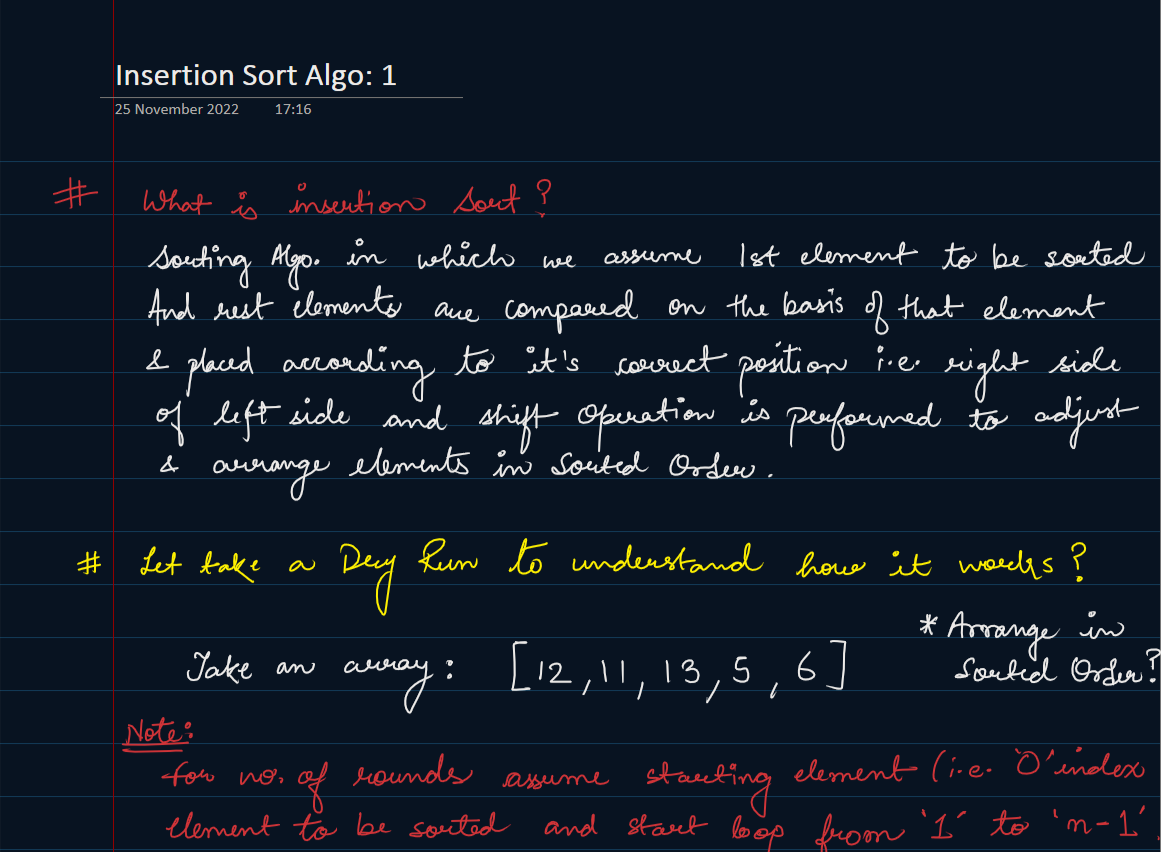 Insertion Sort Algo: 1
25 November 2022 17:16
# What is insertion Sort?
Sorting Algo. in which we assume 1st element to be sorted
And rest elements are compared on the basis of that element
& placed according to it's correct position i.e. right side
of left side and shift operation is performed to adjust
& arrange elements in Sorted Order.
# Let take a Dry Run to understand how it works?
* Arrange in
Sorted Order?
Take an array: [12, 11, 13, 5, 6]
Note:
for no. of rounds assume starting element (i.e. '0' index
element to be sorted and start loop from '1' to 'n-1'.